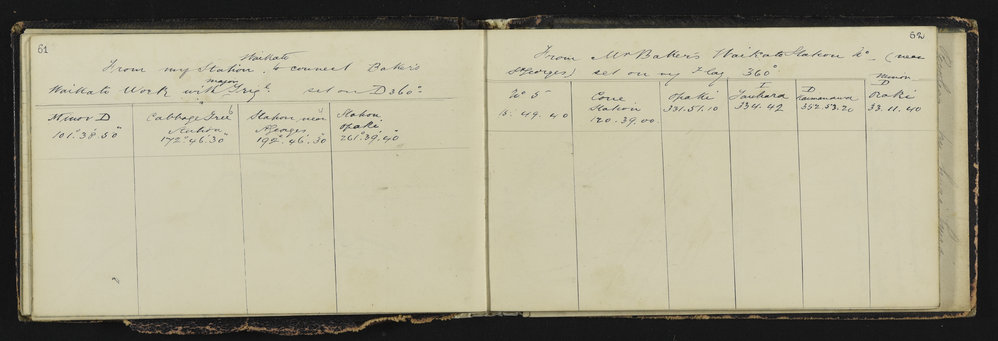 61
Waikato
From my Station, to connect Baker's
major
Waikato Work with Trigl set on D 360°
Minor D
101°.38.50"
Cabbage Tree
Station
172°.46.30"
Station near
St Georges
192°.46.30"
Station
Opaki
261°.39.40"
62
From Mr Baker's Waikato Station No - (near
St Georges) set on my Flag 360°
No 5
15.49.40
Cone
Station
120.39.00
Opaki
331.51.10
Tauhara
334.42
D
Kaimanawa
352.53.20
Minor
D
Oraki
33.11.40